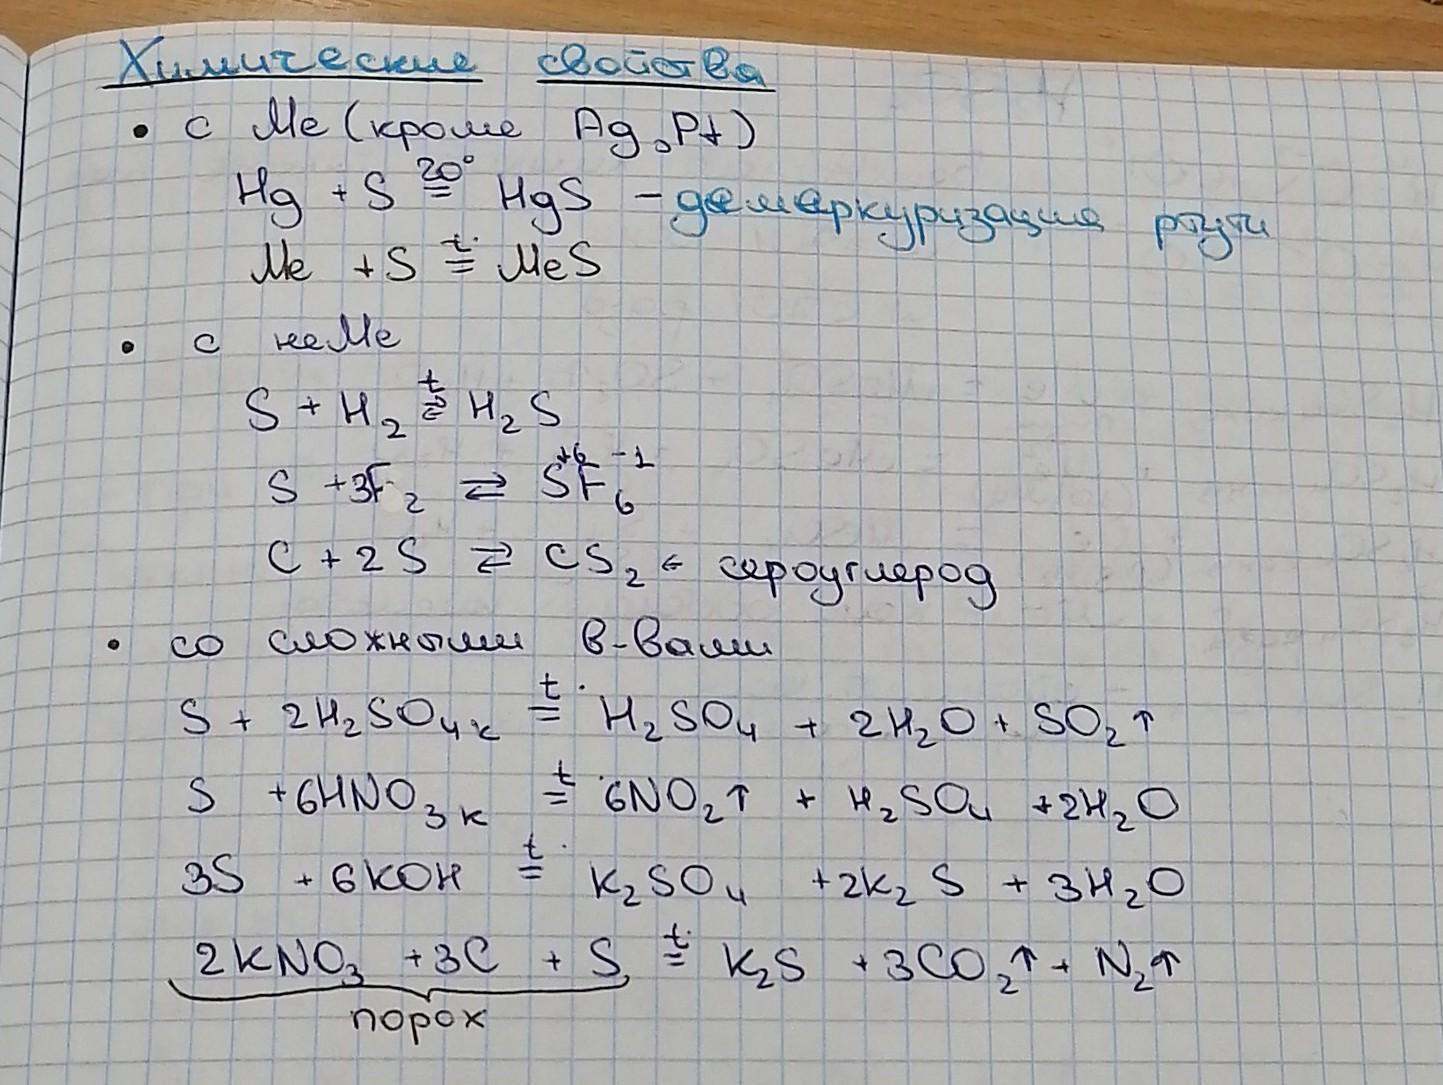 Химические свойства
• с Me (кроме Ag, Pt)
Hg + S =20° HgS – демеркуризация ртути
Me + S =t° MeS
• с неMe
S + H₂ ⇄t H₂S
S + 3F₂ ⇄ S⁺⁶F₆⁻¹
C + 2S ⇄ CS₂ ← сероуглерод
• со сложными в-вами
S + 2H₂SO₄к =t° H₂SO₄ + 2H₂O + SO₂↑
S + 6HNO₃к =t° 6NO₂↑ + H₂SO₄ + 2H₂O
3S + 6KOH =t° K₂SO₄ + 2K₂S + 3H₂O
2KNO₃ + 3C + S =t° K₂S + 3CO₂↑ + N₂↑
порох